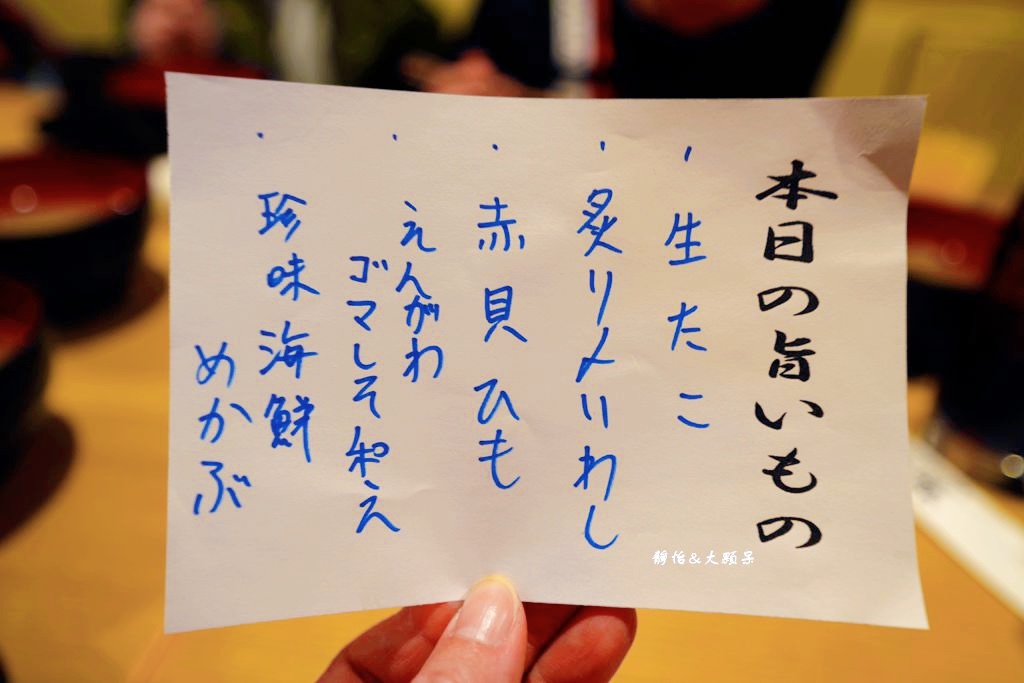 本日の旨いもの
・生たこ
・炙りメいわし
・赤貝ひも
・えんがわ
ゴマしそポえ
・珍味海鮮
めかぶ
靜怡&大顆呆